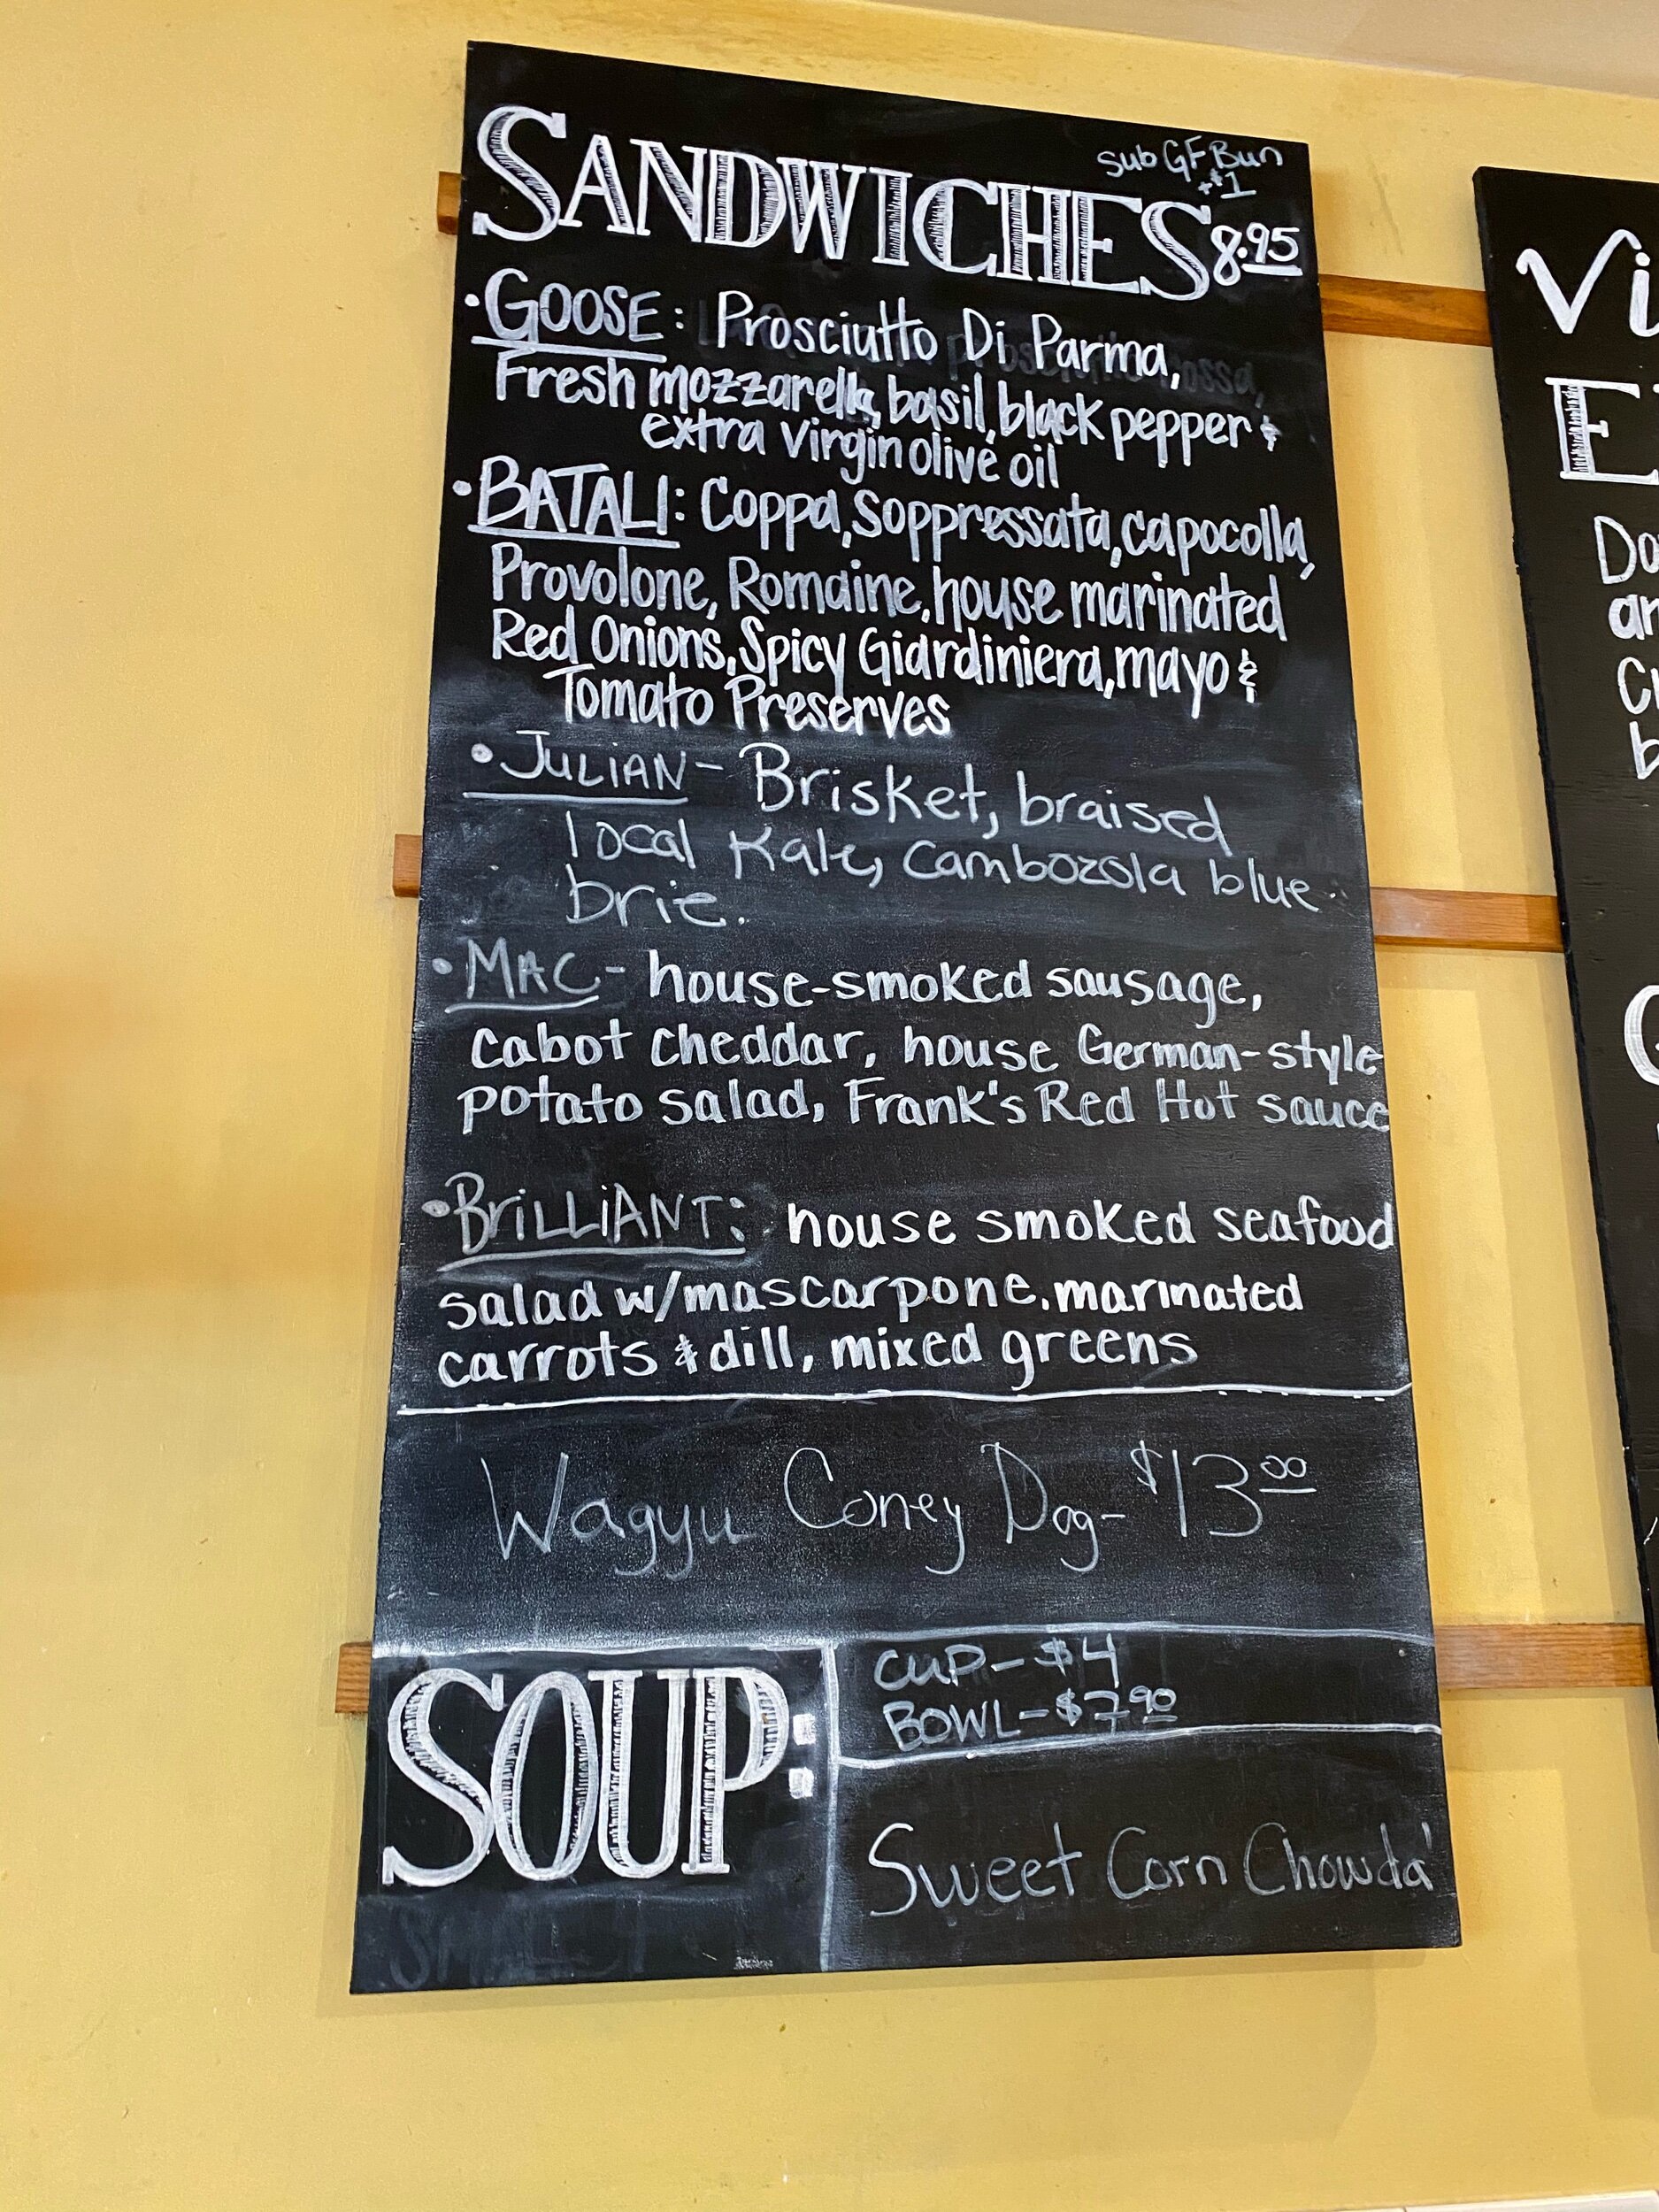 sub GF Bun
+$1
SANDWICHES 8.95
• GOOSE: Prosciutto Di Parma,
Fresh mozzarella, basil, black pepper &
extra virgin olive oil
• BATALI: Coppa, Soppressata, capocolla,
Provolone, Romaine, house marinated
Red Onions, Spicy Giardiniera, mayo &
Tomato Preserves
• JULIAN - Brisket, braised
local Kale, Cambozola blue
brie.
• MAC - house-smoked sausage,
Cabot cheddar, house German-style
potato salad, Frank's Red Hot sauce
• BRILLIANT: house smoked seafood
salad w/mascarpone, marinated
carrots & dill, mixed greens
Wagyu Coney Dog - $13.00
SOUP:
CUP - $4
BOWL - $7.90
Sweet Corn Chowda'
Vi
E
Do
an
b